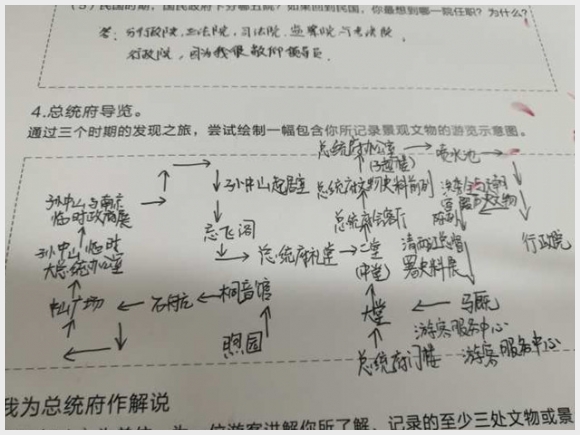 (3) 民国时期，国民政府下分哪五院？如果回到民国，你最想到哪一院任职？为什么？
答：行政院，立法院，司法院，监察院，考试院，
行政院，因为我很敬仰
4.总统府导览。
通过三个时期的发现之旅，尝试绘制一幅包含你所记录景观文物的游览示意图。
总统府办公室
(子超楼)
喷水池
孙中山起居室
总统府文物史料陈列
孙中山与南京
临时政府展
忘飞阁
总统府会客厅
文物
行政院
孙中山临时
大总统办公室
总统府礼堂
二堂
(中堂)
清两江总督
署史料展
中山广场
石舫
桐音馆
马厩
煦园
大堂
游客服务中心
总统府门楼
游客服务中心
我为总统府作解说
游客讲解你所了解、记录的至少三处文物或景